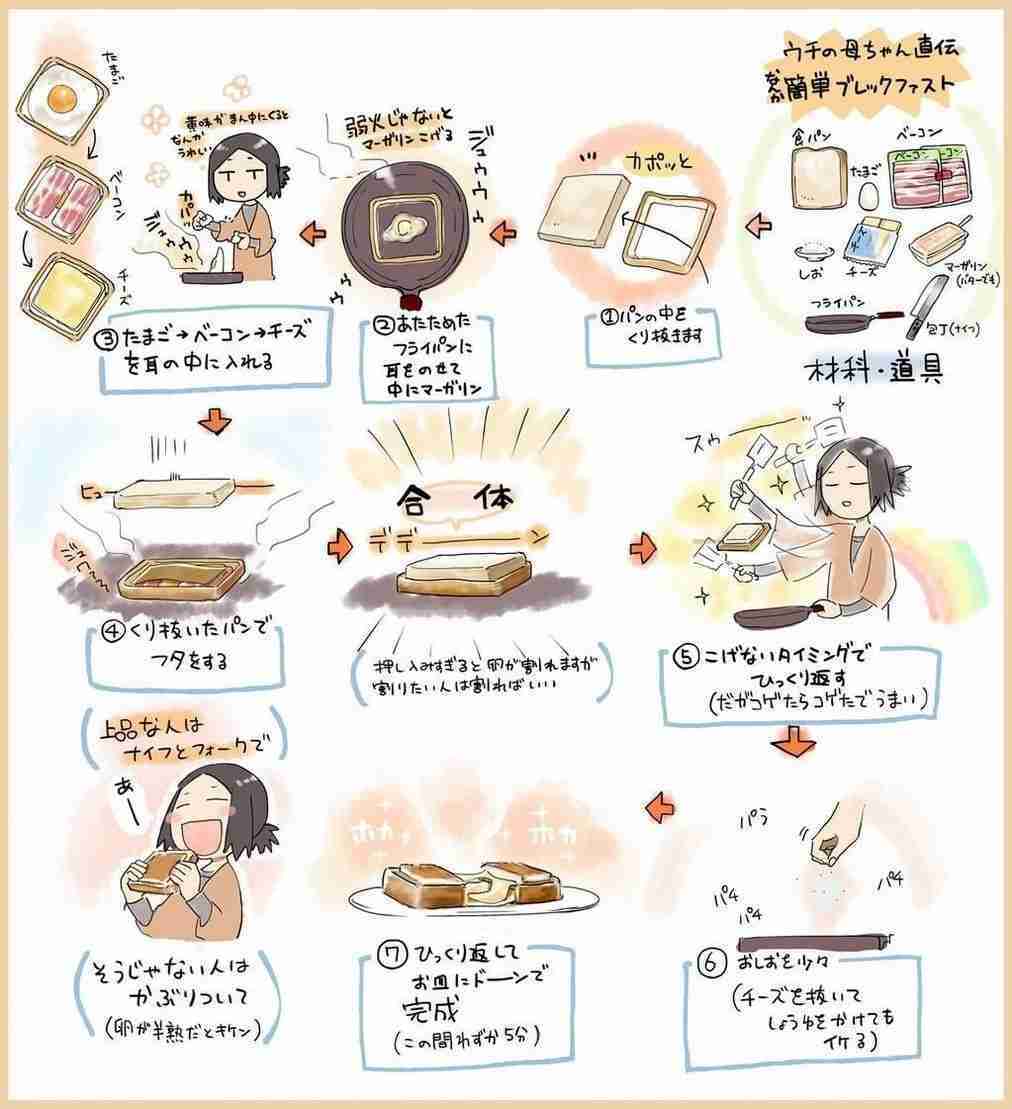 ウチの母ちゃん直伝
なんか簡単ブレックファスト
食パン
たまご
ベーコン
ベーコン
ーコン
しお
チーズ
マーガリン
(バターでも)
フライパン
包丁(ナイフ)
材料・道具
カポッと
①パンの中を
くり抜きます
弱火じゃないと
マーガリンこげる
ジュゥゥゥ
ゥゥ
②あたためた
フライパンに
耳をのせて
中にマーガリン
黄味がまん中にくると
なんか
うれしい
カパッ
たまご
ベーコン
チーズ
③たまご→ベーコン→チーズ
を耳の中に入れる
ヒュー
④くり抜いたパンで
フタをする
合体
デデーーーン
(押し込みすぎると卵が割れますが
割りたい人は割ればいい)
スゥーー
⑤こげないタイミングで
ひっくり返す
(だがコゲたらコゲたでうまい)
パラ
パラ
パラ
パラ
⑥おしおを少々
(チーズを抜いて
しょうゆをかけても
イケる)
ホカッ
ホカ
⑦ひっくり返して
お皿にドーンで
完成
(この間わずか5分)
(上品な人は
ナイフとフォークで)
あー
(そうじゃない人は
かぶりついて
(卵が半熟だとキケン))